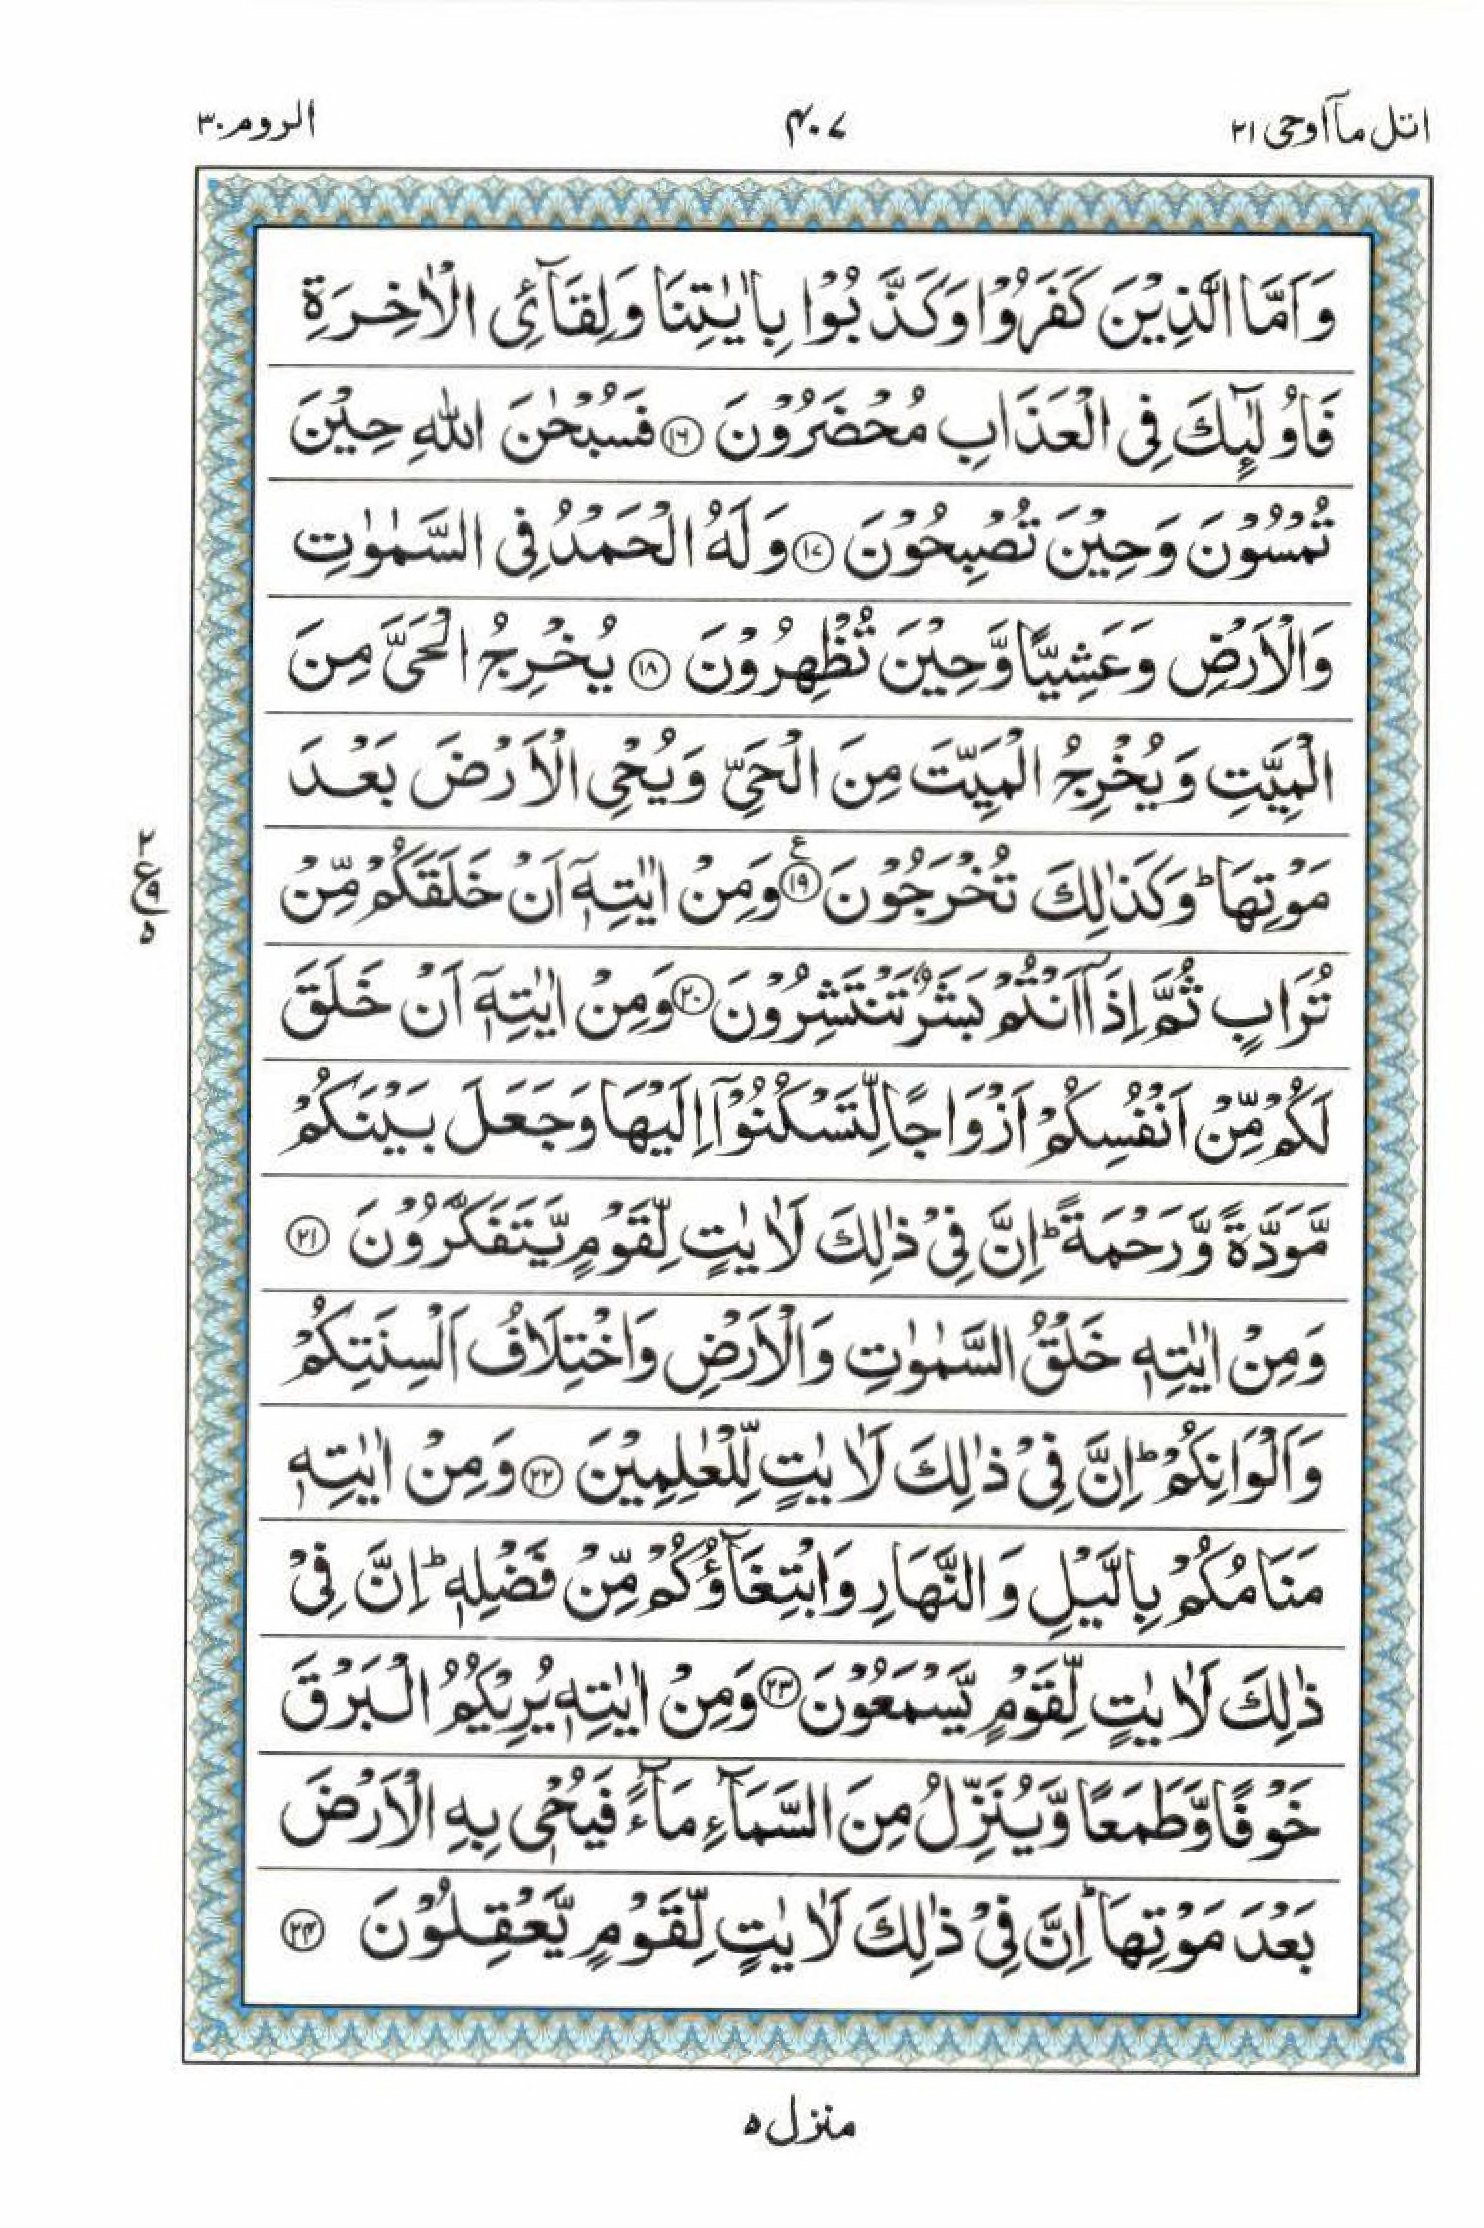 اتل مآاوحی ۲۱
۴۰۷
الروم ۳۰
وَاَمَّا الَّذِيْنَ كَفَرُوْا وَكَذَّبُوْا بِاٰيٰتِنَا وَلِقَآئِ الْاٰخِرَةِ
فَاُولٰٓئِكَ فِى الْعَذَابِ مُحْضَرُوْنَ ﴿۱۶﴾ فَسُبْحٰنَ اللّٰهِ حِيْنَ
تُمْسُوْنَ وَحِيْنَ تُصْبِحُوْنَ ﴿۱۷﴾ وَلَهُ الْحَمْدُ فِى السَّمٰوٰتِ
وَالْاَرْضِ وَعَشِيًّا وَّحِيْنَ تُظْهِرُوْنَ ﴿۱۸﴾ يُخْرِجُ الْحَىَّ مِنَ
الْمَيِّتِ وَيُخْرِجُ الْمَيِّتَ مِنَ الْحَىِّ وَيُحْىِ الْاَرْضَ بَعْدَ
مَوْتِهَا ؕ وَكَذٰلِكَ تُخْرَجُوْنَ ﴿۱۹﴾ ع وَمِنْ اٰيٰتِهٖۤ اَنْ خَلَقَكُمْ مِّنْ
۲
ع
۹
۵
تُرَابٍ ثُمَّ اِذَاۤ اَنْتُمْ بَشَرٌ تَنْتَشِرُوْنَ ﴿۲۰﴾ وَمِنْ اٰيٰتِهٖۤ اَنْ خَلَقَ
لَكُمْ مِّنْ اَنْفُسِكُمْ اَزْوَاجًا لِّتَسْكُنُوْۤا اِلَيْهَا وَجَعَلَ بَيْنَكُمْ
مَّوَدَّةً وَّرَحْمَةً ؕ اِنَّ فِىْ ذٰلِكَ لَاٰيٰتٍ لِّقَوْمٍ يَّتَفَكَّرُوْنَ ﴿۲۱﴾
وَمِنْ اٰيٰتِهٖ خَلْقُ السَّمٰوٰتِ وَالْاَرْضِ وَاخْتِلَافُ اَلْسِنَتِكُمْ
وَاَلْوَانِكُمْ ؕ اِنَّ فِىْ ذٰلِكَ لَاٰيٰتٍ لِّلْعٰلِمِيْنَ ﴿۲۲﴾ وَمِنْ اٰيٰتِهٖ
مَنَامُكُمْ بِالَّيْلِ وَالنَّهَارِ وَابْتِغَآؤُكُمْ مِّنْ فَضْلِهٖ ؕ اِنَّ فِىْ
ذٰلِكَ لَاٰيٰتٍ لِّقَوْمٍ يَّسْمَعُوْنَ ﴿۲۳﴾ وَمِنْ اٰيٰتِهٖ يُرِيْكُمُ الْبَرْقَ
خَوْفًا وَّطَمَعًا وَّيُنَزِّلُ مِنَ السَّمَآءِ مَآءً فَيُحْىٖ بِهِ الْاَرْضَ
بَعْدَ مَوْتِهَا ؕ اِنَّ فِىْ ذٰلِكَ لَاٰيٰتٍ لِّقَوْمٍ يَّعْقِلُوْنَ ﴿۲۴﴾
منزل ۵